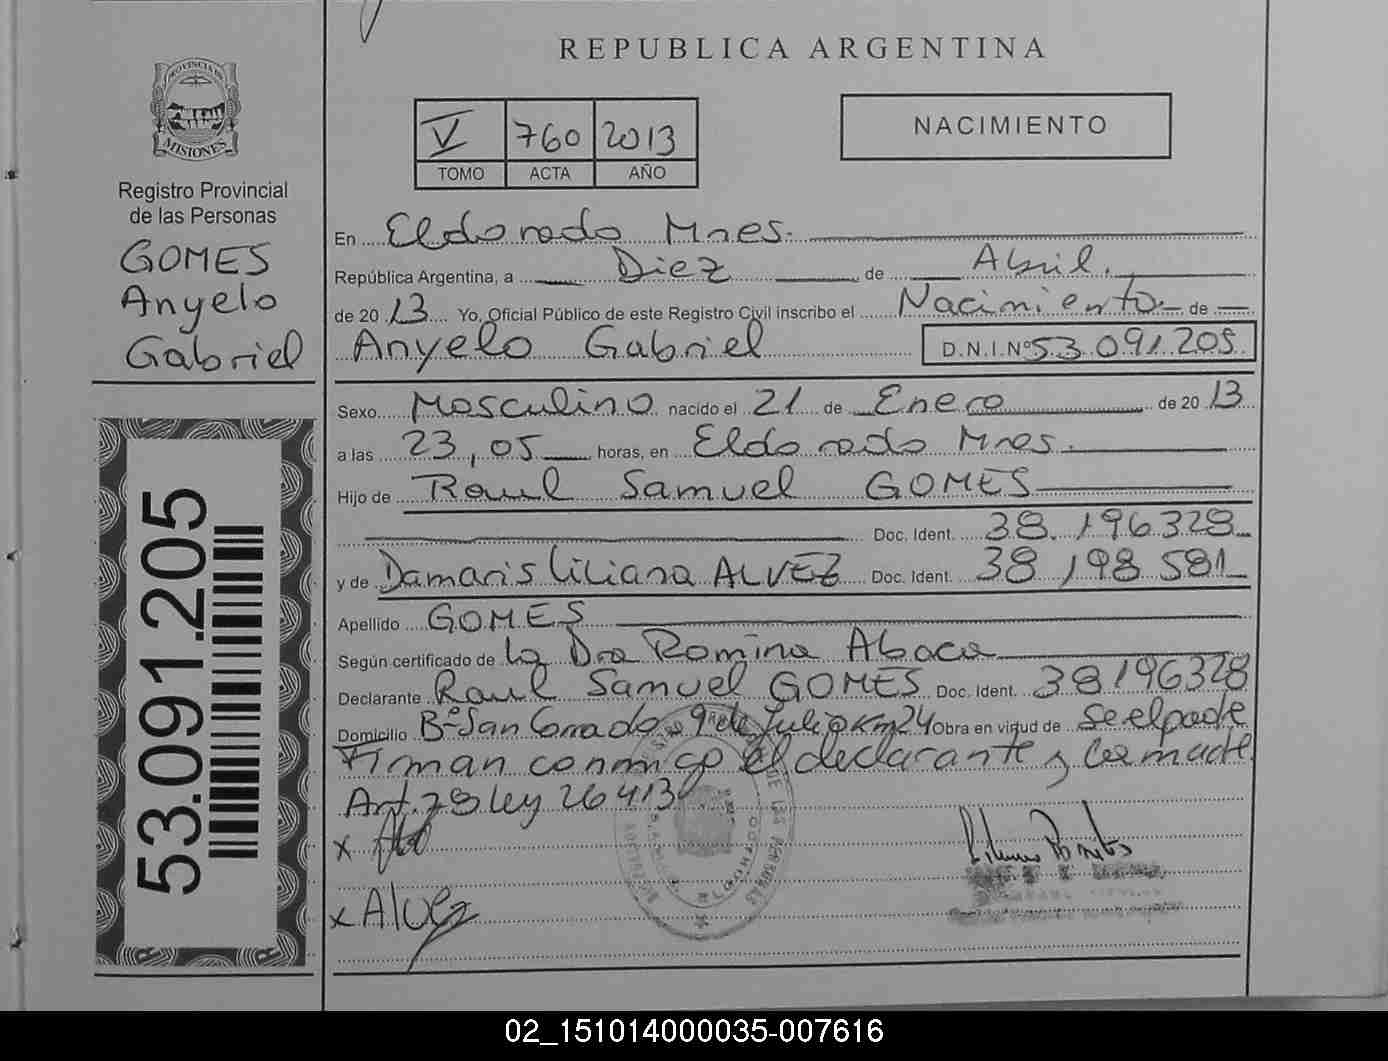 REPUBLICA ARGENTINA
PROVINCIA DE
MISIONES
Registro Provincial
de las Personas
GOMES
Anyelo
Gabriel
53.091.205
V 760 2013
TOMO ACTA AÑO
NACIMIENTO
En Eldorado Mnes.
República Argentina, a Diez de Abril,
de 20 13 Yo, Oficial Público de este Registro Civil inscribo el Nacimiento de
Anyelo Gabriel D.N.I.Nº 53.091.205
Sexo Masculino nacido el 21 de Enero de 20 13
a las 23,05 horas, en Eldorado Mnes.
Hijo de Raul Samuel GOMES
Doc. Ident. 38.196328
y de Damaris Liliana ALVEZ Doc. Ident. 38 198 581
Apellido GOMES
Según certificado de La Dra Romina Abaca
Declarante Raul Samuel GOMES Doc. Ident. 38196328
Domicilio Bº San Conrado 9 de Julio Km 24 Obra en virtud de Se el padre
Firman conmigo el declarante y la madre
Art. 78 ley 26413
x
x Alvez
02_151014000035-007616